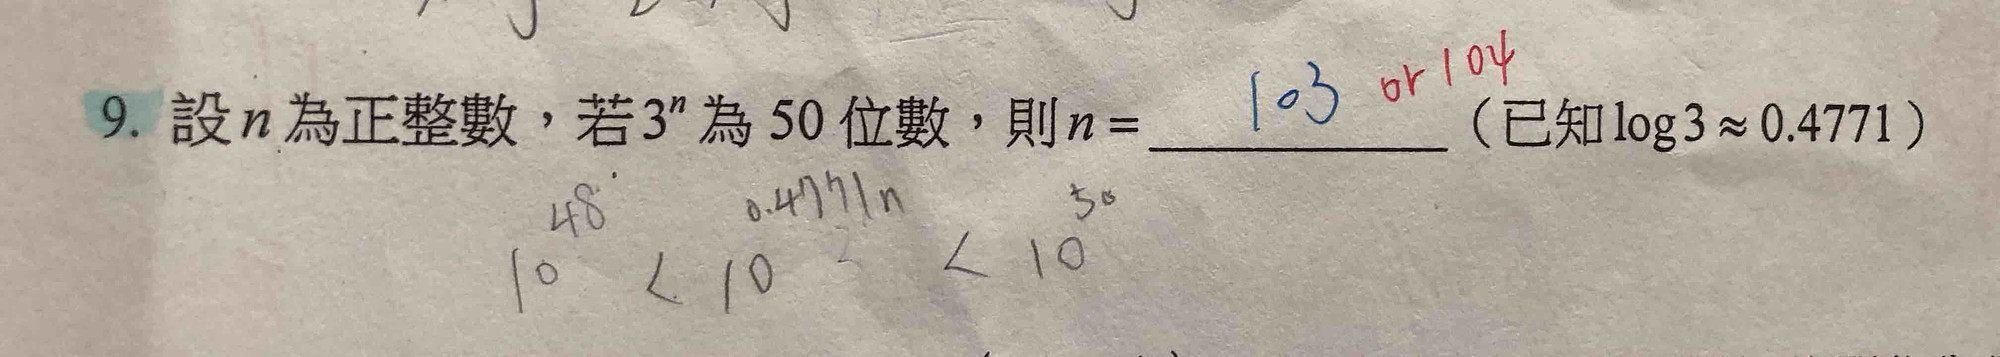 9. 設n為正整數，若3ⁿ為 50 位數，則n = 103 or 104（已知log3≈0.4771）
10⁴⁸ < 10^0.4771n < 10⁵⁰